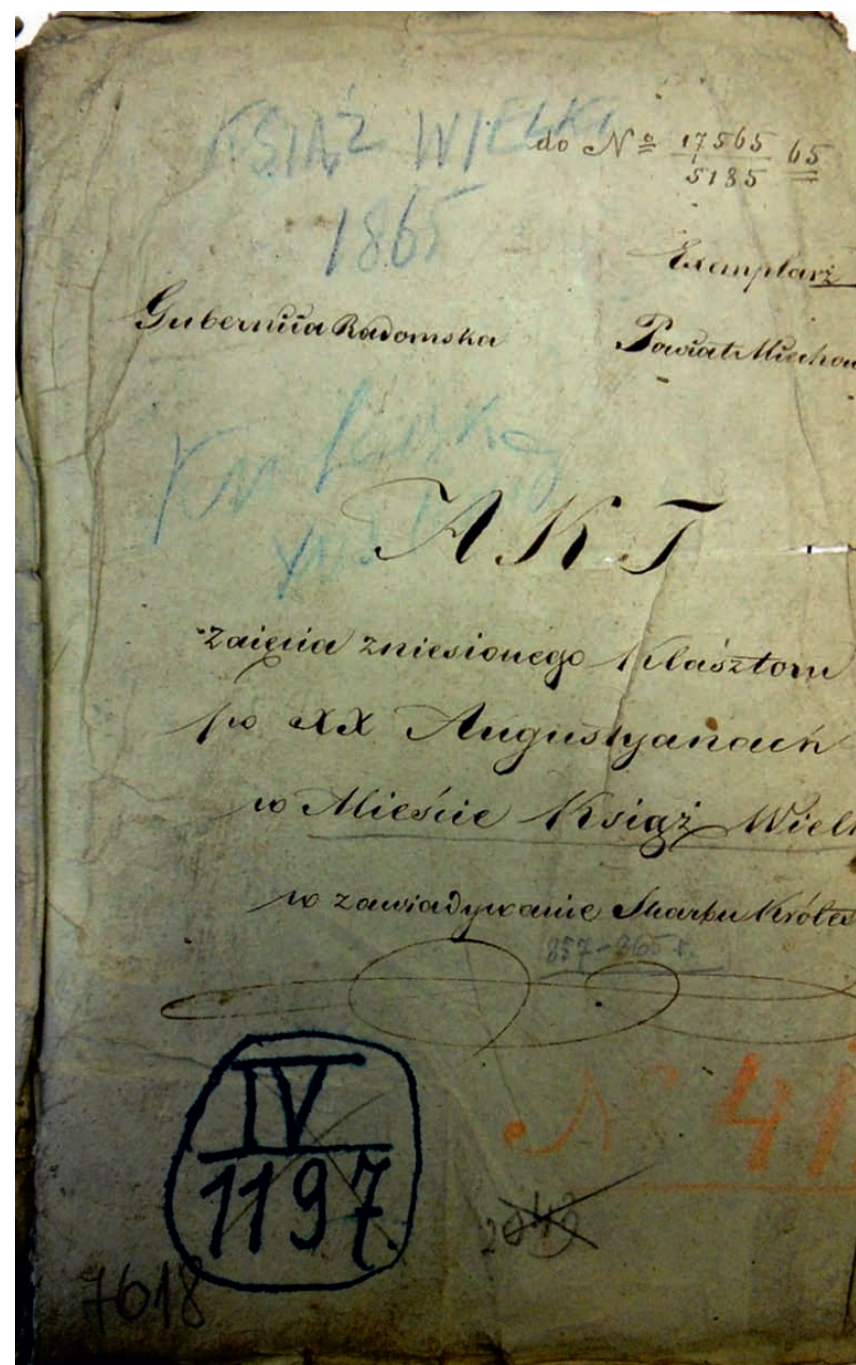 KSIĄŻ WIELKI
do No 17565 65
5185
1865
Exemplarz
Gubernija Radomska
Powiat Miechow
AKT
zaięcia zniesionego Klasztoru
po XX Augustyanach
w Mieście Książ Wielk
w zawiadywanie Skarbu Króles
857-865 r.
IV
1197.
No 41
2043
7618